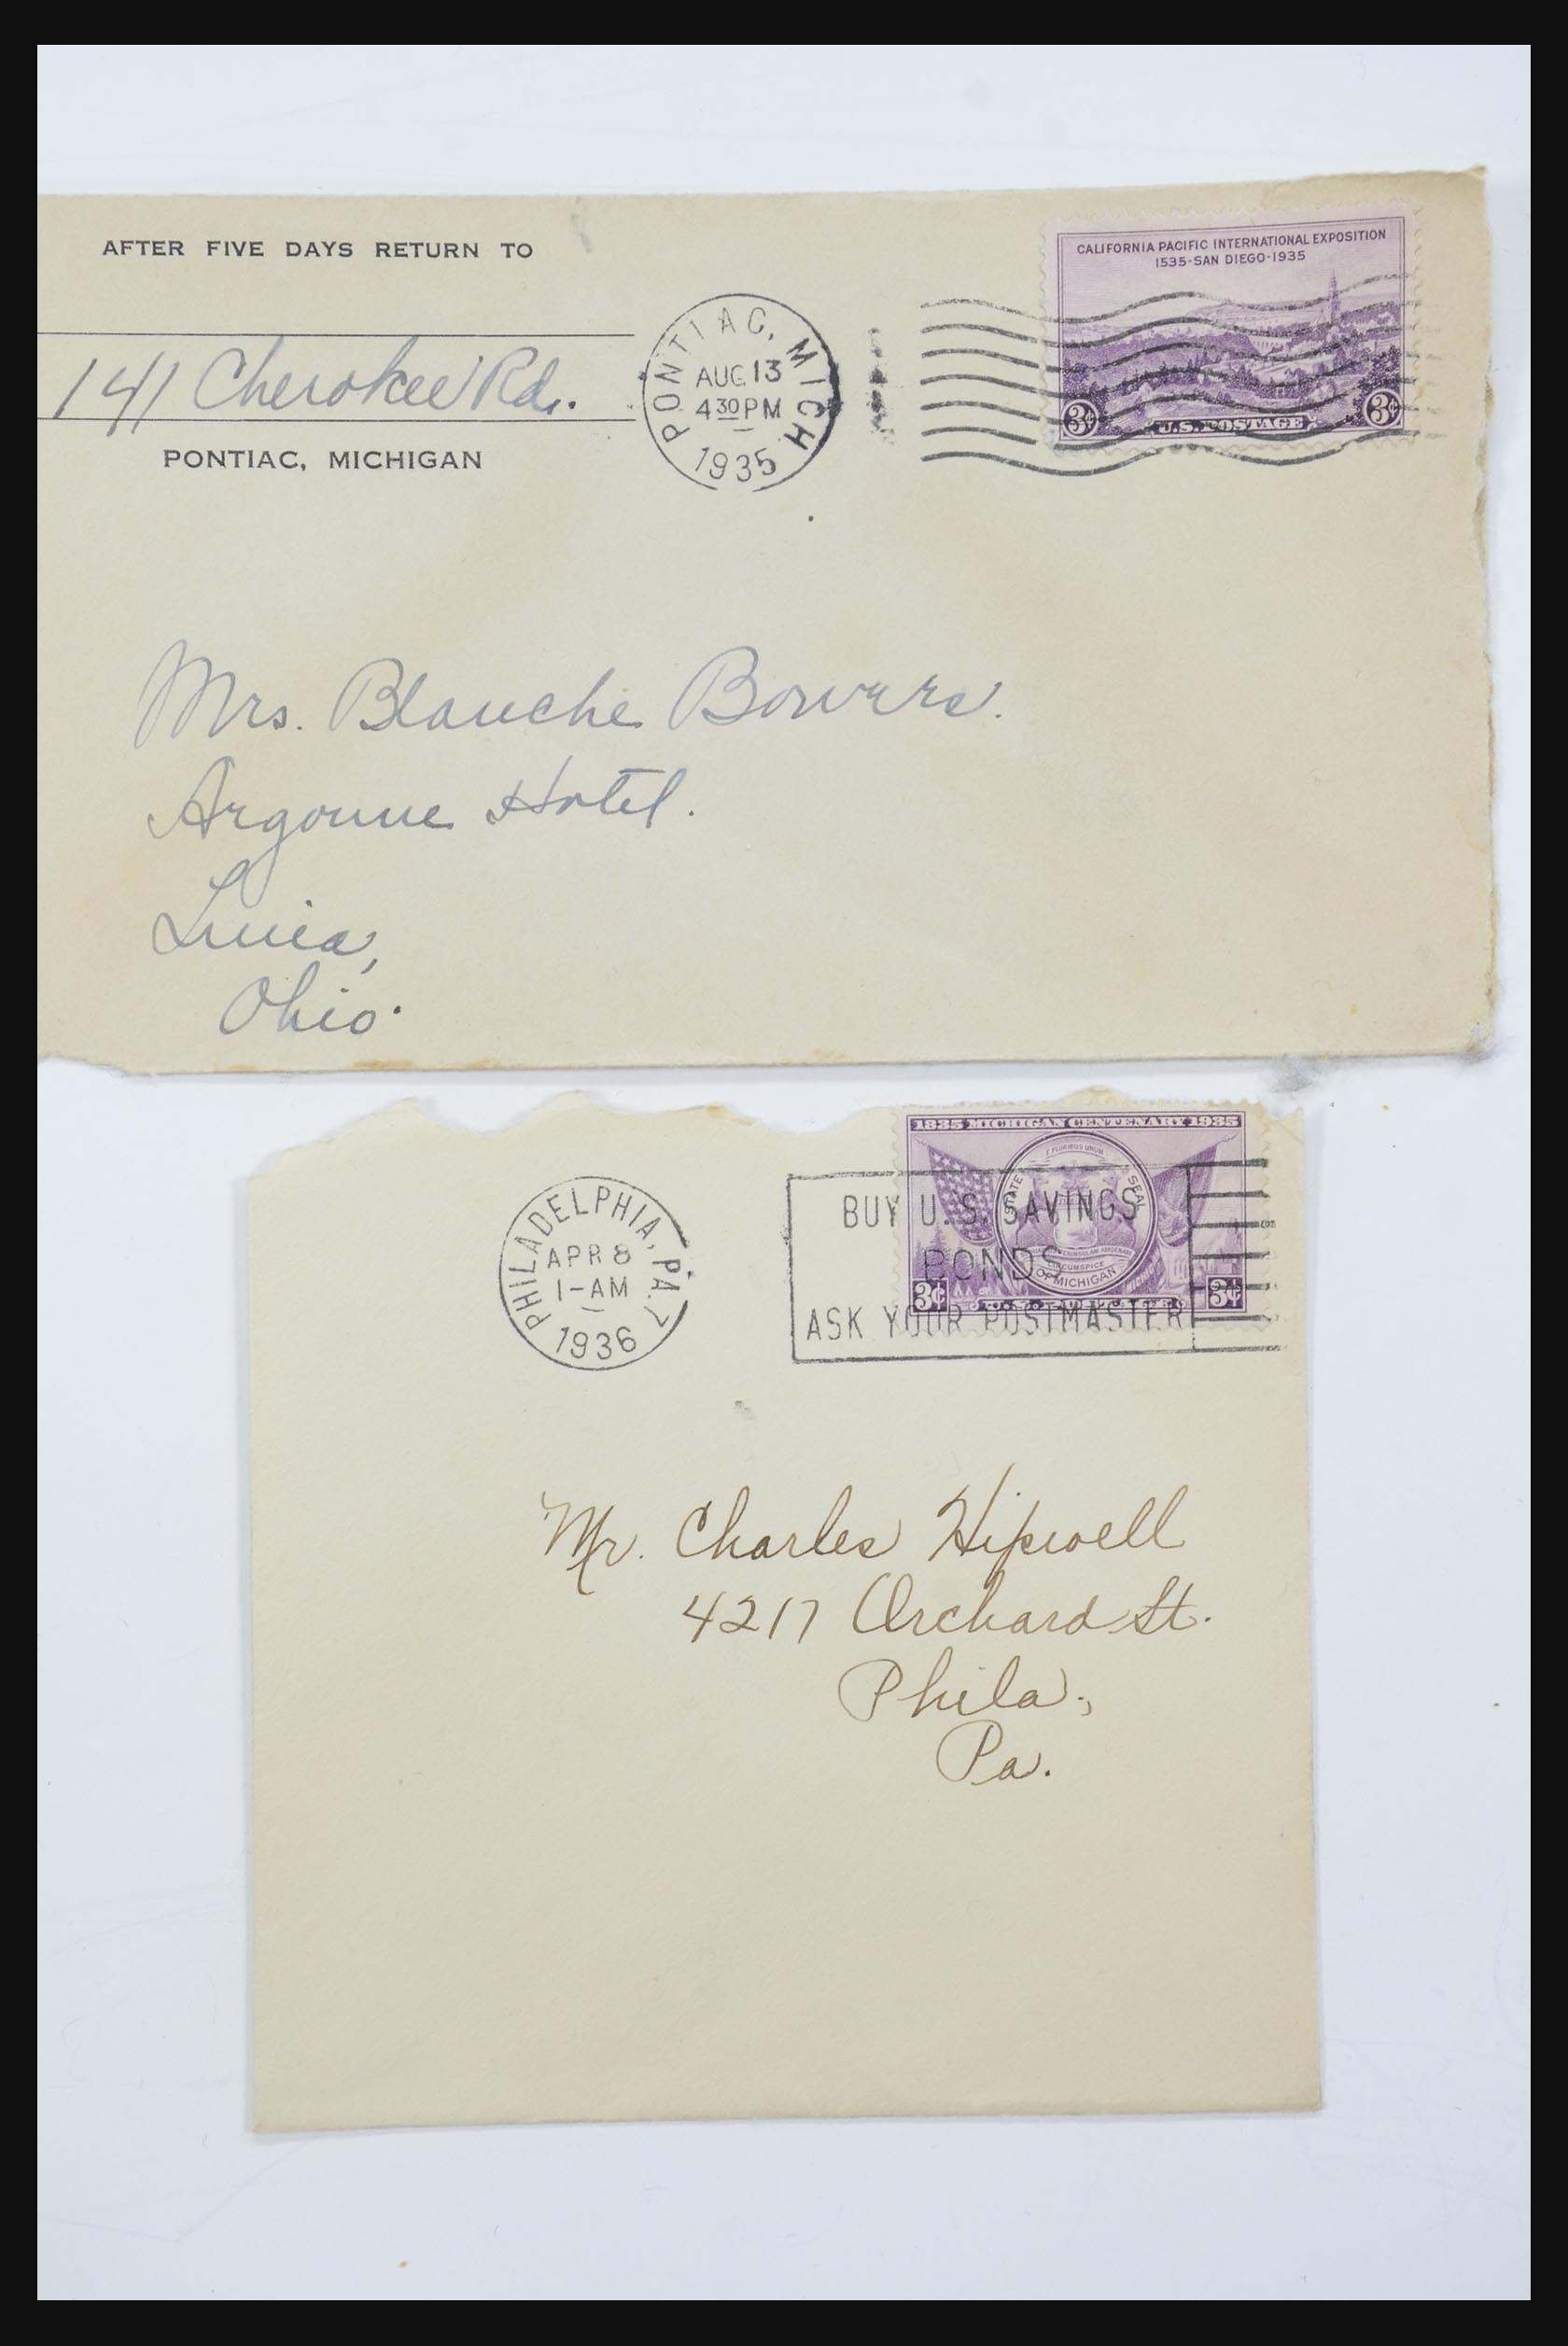 AFTER FIVE DAYS RETURN TO
141 Cherokee Rd.
PONTIAC, MICHIGAN
PONTIAC, MICH
AUG 13
4 30 PM
1935
CALIFORNIA PACIFIC INTERNATIONAL EXPOSITION
1535-SAN DIEGO-1935
3¢ U.S. POSTAGE 3¢
Mrs. Blanche Bowers.
Argonne Hotel.
Lima,
Ohio.
PHILADELPHIA, PA. 7
APR 8
1-AM
1936
1835 MICHIGAN CENTENARY 1935
E PLURIBUS UNUM
STATE SEAL
CIRCUMSPICE
OF MICHIGAN
3¢ 3¢
BUY U.S. SAVINGS
BONDS
ASK YOUR POSTMASTER
Mr. Charles Hipwell
4217 Orchard St.
Phila.,
Pa.